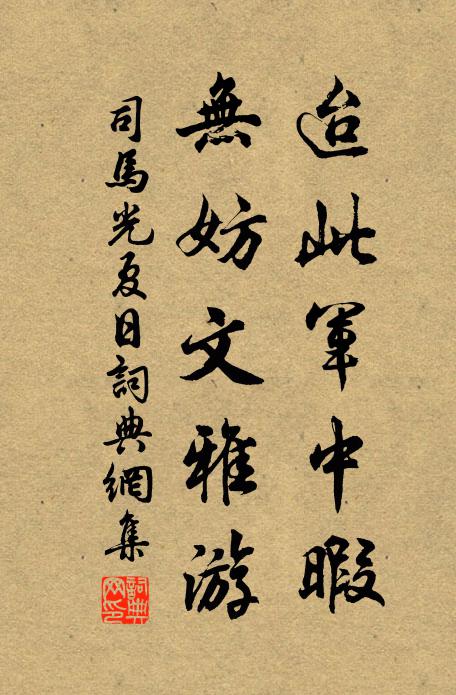 迨此軍中暇
無妨文雅游
司馬光夏日詞典網集
詞典
网印